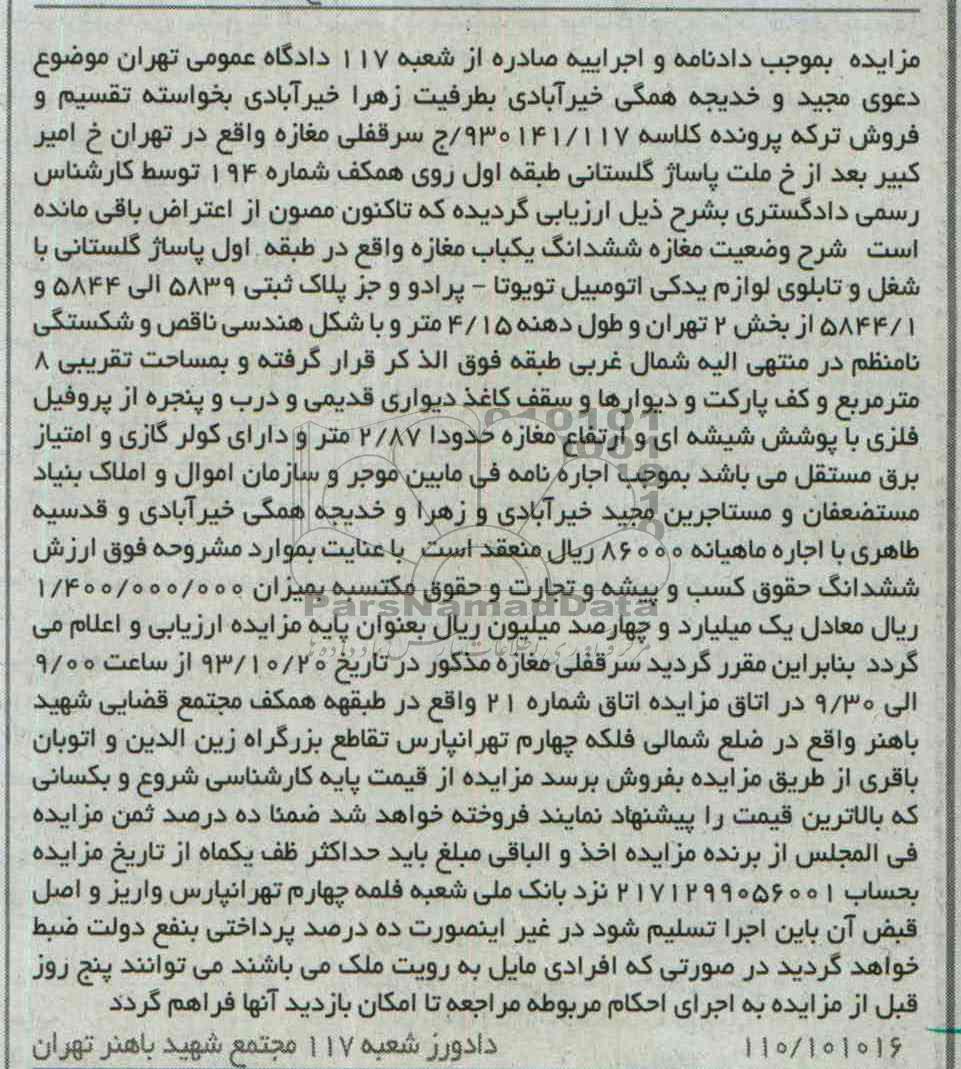 مزایده بموجب دادنامه و اجراییه صادره از شعبه ۱۱۷ دادگاه عمومی تهران موضوع
دعوی مجید و خدیجه همگی خیرآبادی بطرفیت زهرا خیرآبادی بخواسته تقسیم و
فروش ترکه پرونده کلاسه ۹۳۰۱۴۱/۱۱۷/ج سرقفلی مغازه واقع در تهران خ امیر
کبیر بعد از خ ملت پاساژ گلستانی طبقه اول روی همکف شماره ۱۹۴ توسط کارشناس
رسمی دادگستری بشرح ذیل ارزیابی گردیده که تاکنون مصون از اعتراض باقی مانده
است شرح وضعیت مغازه ششدانگ یکباب مغازه واقع در طبقه اول پاساژ گلستانی با
شغل و تابلوی لوازم یدکی اتومبیل تویوتا - پرادو و جز پلاک ثبتی ۵۸۳۹ الی ۵۸۴۴ و
۵۸۴۴/۱ از بخش ۲ تهران و طول دهنه ۴/۱۵ متر و با شکل هندسی ناقص و شکستگی
نامنظم در منتهی الیه شمال غربی طبقه فوق الذ کر قرار گرفته و بمساحت تقریبی ۸
مترمربع و کف پارکت و دیوارها و سقف کاغذ دیواری قدیمی و درب و پنجره از پروفیل
فلزی با پوشش شیشه ای و ارتفاع مغازه حدودا ۲/۸۷ متر و دارای کولر گازی و امتیاز
برق مستقل می باشد بموجب اجاره نامه فی مابین موجر و سازمان اموال و املاک بنیاد
مستضعفان و مستاجرین مجید خیرآبادی و زهرا و خدیجه همگی خیرآبادی و قدسیه
طاهری با اجاره ماهیانه ۸۶۰۰۰ ریال منعقد است با عنایت بموارد مشروحه فوق ارزش
ششدانگ حقوق کسب و پیشه و تجارت و حقوق مکتسبه بمیزان ۱/۴۰۰/۰۰۰/۰۰۰
ParsNamadData
ریال معادل یک میلیارد و چهارصد میلیون ریال بعنوان پایه مزایده ارزیابی و اعلام می
گردد بنابراین مقرر گردید سرقفلی مغازه مذکور در تاریخ ۹۳/۱۰/۲۰ از ساعت ۹/۰۰
الی ۹/۳۰ در اتاق مزایده اتاق شماره ۲۱ واقع در طبقهه همکف مجتمع قضایی شهید
باهنر واقع در ضلع شمالی فلکه چهارم تهرانپارس تقاطع بزرگراه زین الدین و اتوبان
باقری از طریق مزایده بفروش برسد مزایده از قیمت پایه کارشناسی شروع و بکسانی
که بالاترین قیمت را پیشنهاد نمایند فروخته خواهد شد ضمنا ده درصد ثمن مزایده
فی المجلس از برنده مزایده اخذ و الباقی مبلغ باید حداکثر ظف یکماه از تاریخ مزایده
بحساب ۲۱۷۱۲۹۹۰۵۶۰۰۱ نزد بانک ملی شعبه فلمه چهارم تهرانپارس واریز و اصل
قبض آن باین اجرا تسلیم شود در غیر اینصورت ده درصد پرداختی بنفع دولت ضبط
خواهد گردید در صورتی که افرادی مایل به رویت ملک می باشند می توانند پنج روز
قبل از مزایده به اجرای احکام مربوطه مراجعه تا امکان بازدید آنها فراهم گردد
۱۱۰/۱۰۱۰۱۶ دادورز شعبه ۱۱۷ مجتمع شهید باهنر تهران